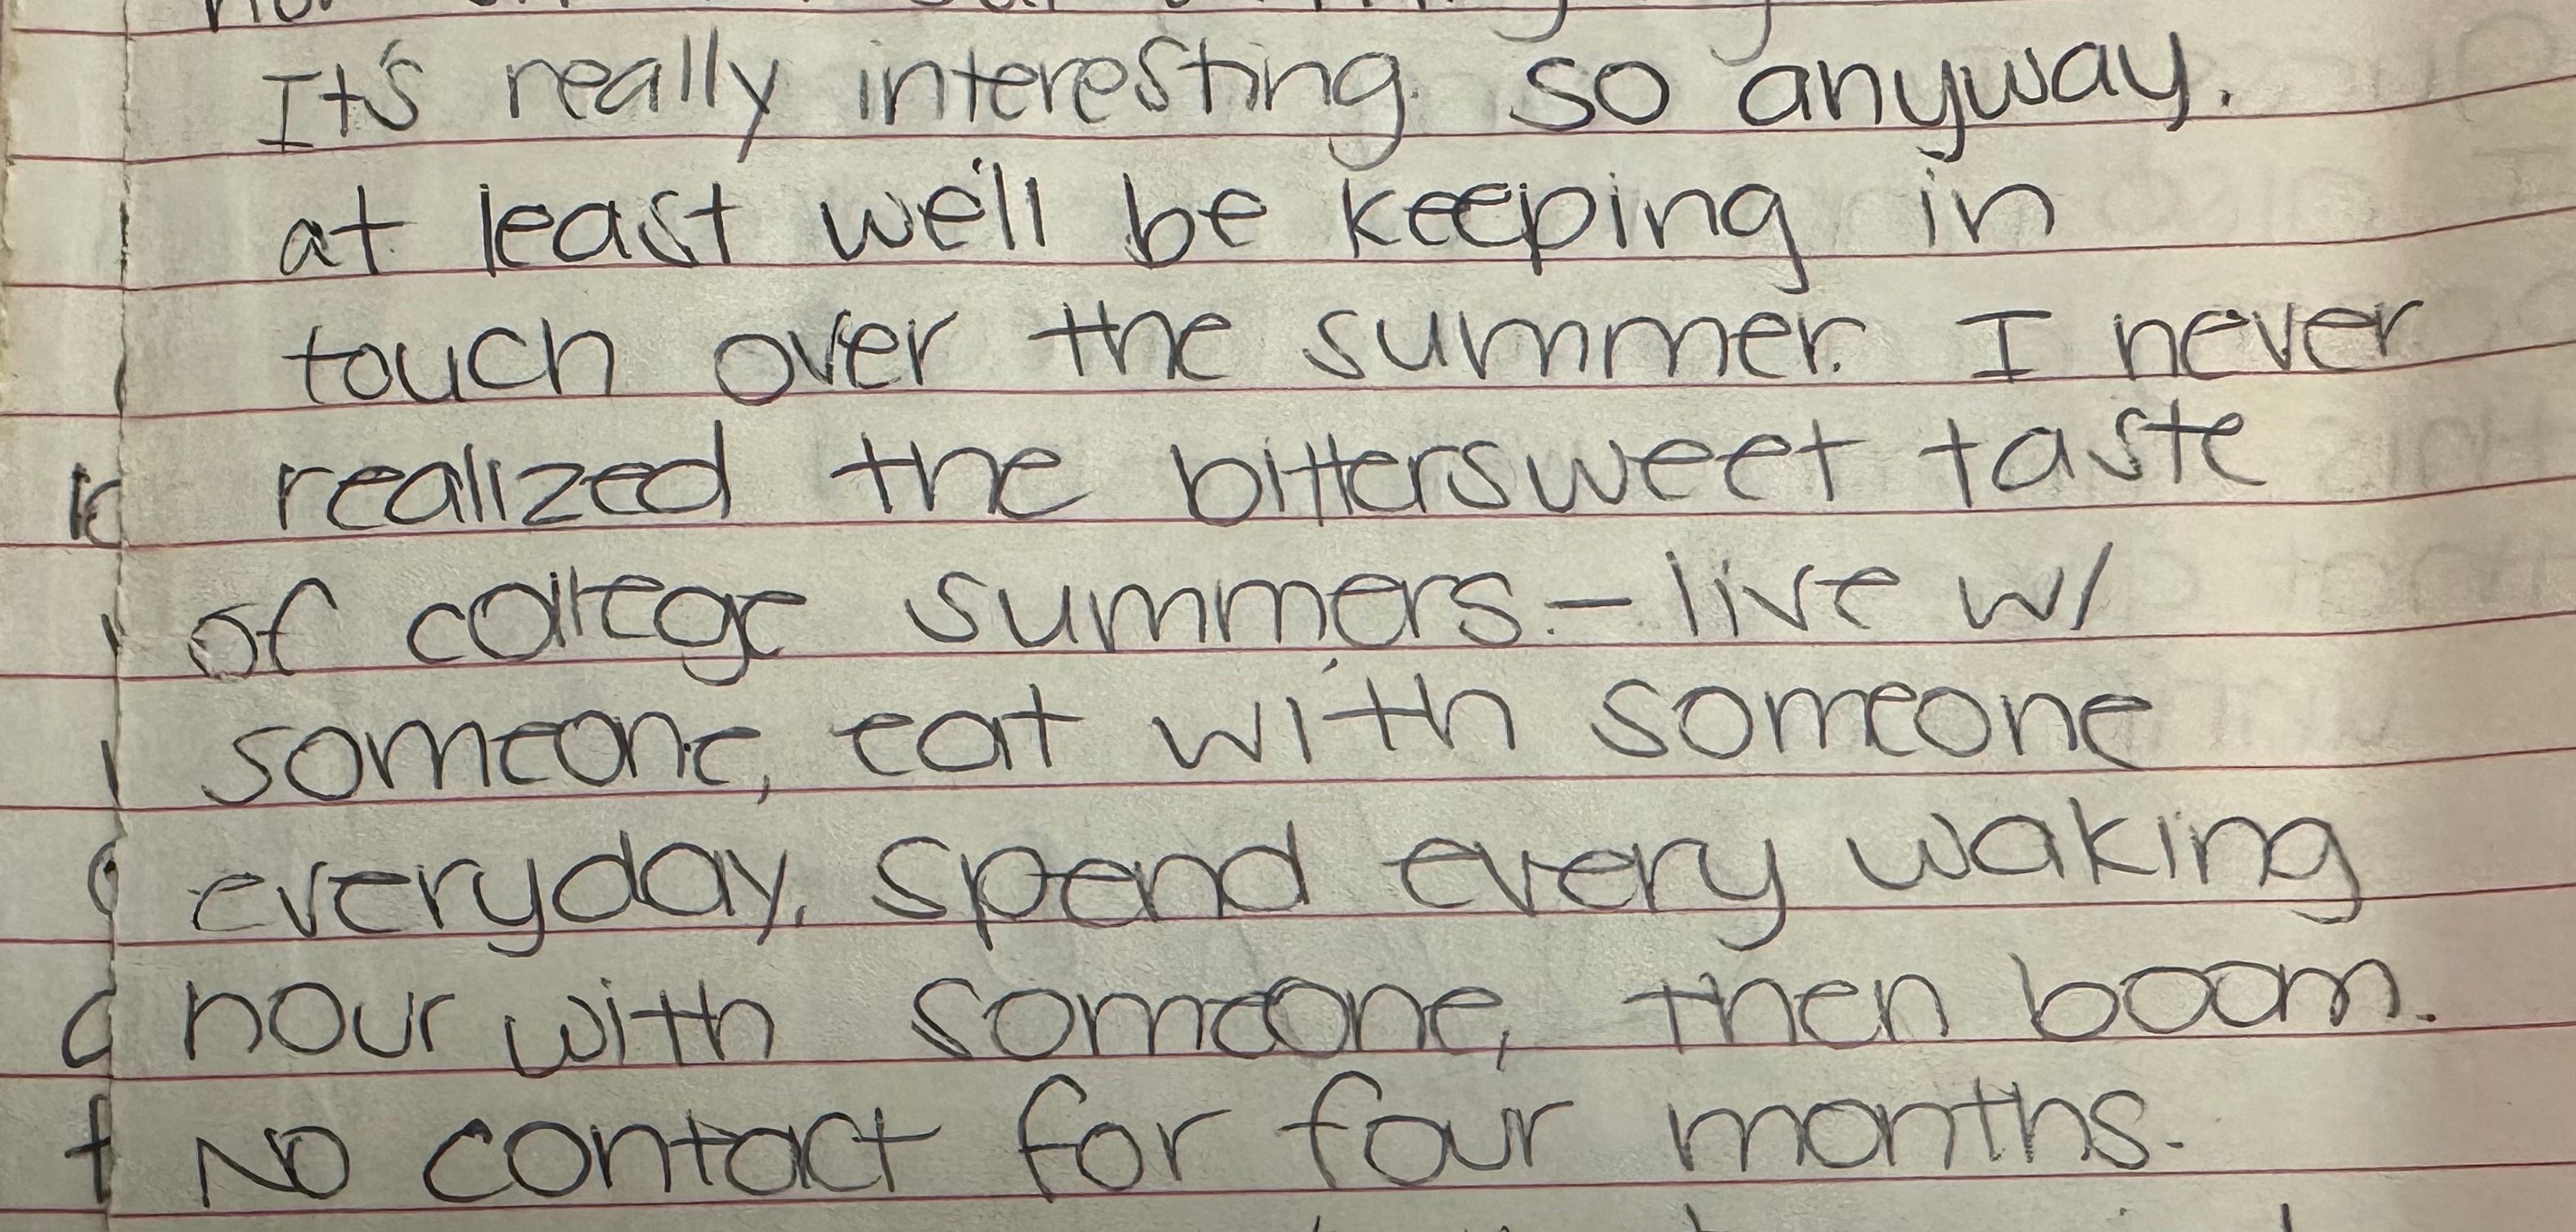 It's really interesting. so anyway.
at least we'll be keeping in
touch over the summer. I never
realized the bittersweet taste
of college summers. – live w/
someone, eat with someone
everyday, spend every waking
hour with someone, then boom.
No contact for four months.